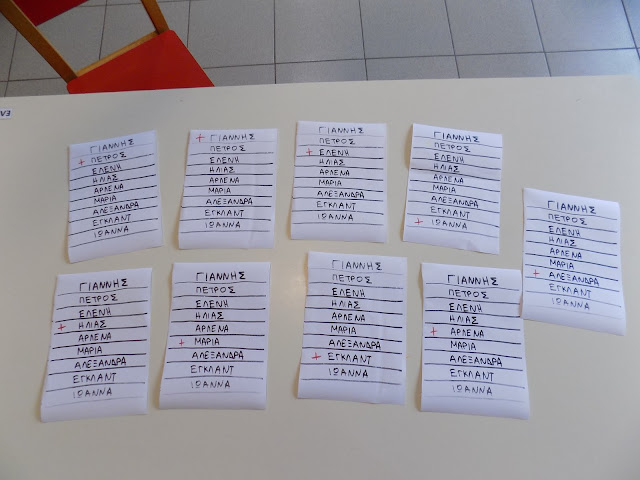 ΓΙΑΝΝΗΣ
+ ΠΕΤΡΟΣ
ΕΛΕΝΗ
ΗΛΙΑΣ
ΑΡΛΕΝΑ
ΜΑΡΙΑ
ΑΛΕΞΑΝΔΡΑ
ΕΓΚΛΑΝΤ
ΙΩΑΝΝΑ
+ ΓΙΑΝΝΗΣ
ΠΕΤΡΟΣ
ΕΛΕΝΗ
ΗΛΙΑΣ
ΑΡΛΕΝΑ
ΜΑΡΙΑ
ΑΛΕΞΑΝΔΡΑ
ΕΓΚΛΑΝΤ
ΙΩΑΝΝΑ
ΓΙΑΝΝΗΣ
ΠΕΤΡΟΣ
+ ΕΛΕΝΗ
ΗΛΙΑΣ
ΑΡΛΕΝΑ
ΜΑΡΙΑ
ΑΛΕΞΑΝΔΡΑ
ΕΓΚΛΑΝΤ
ΙΩΑΝΝΑ
ΓΙΑΝΝΗΣ
ΠΕΤΡΟΣ
ΕΛΕΝΗ
ΗΛΙΑΣ
ΑΡΛΕΝΑ
ΜΑΡΙΑ
ΑΛΕΞΑΝΔΡΑ
ΕΓΚΛΑΝΤ
+ ΙΩΑΝΝΑ
ΓΙΑΝΝΗΣ
ΠΕΤΡΟΣ
ΕΛΕΝΗ
ΗΛΙΑΣ
ΑΡΛΕΝΑ
ΜΑΡΙΑ
+ ΑΛΕΞΑΝΔΡΑ
ΕΓΚΛΑΝΤ
ΙΩΑΝΝΑ
ΓΙΑΝΝΗΣ
ΠΕΤΡΟΣ
ΕΛΕΝΗ
+ ΗΛΙΑΣ
ΑΡΛΕΝΑ
ΜΑΡΙΑ
ΑΛΕΞΑΝΔΡΑ
ΕΓΚΛΑΝΤ
ΙΩΑΝΝΑ
ΓΙΑΝΝΗΣ
ΠΕΤΡΟΣ
ΕΛΕΝΗ
ΗΛΙΑΣ
ΑΡΛΕΝΑ
+ ΜΑΡΙΑ
ΑΛΕΞΑΝΔΡΑ
ΕΓΚΛΑΝΤ
ΙΩΑΝΝΑ
ΓΙΑΝΝΗΣ
ΠΕΤΡΟΣ
ΕΛΕΝΗ
ΗΛΙΑΣ
ΑΡΛΕΝΑ
ΜΑΡΙΑ
ΑΛΕΞΑΝΔΡΑ
+ ΕΓΚΛΑΝΤ
ΙΩΑΝΝΑ
ΓΙΑΝΝΗΣ
ΠΕΤΡΟΣ
ΕΛΕΝΗ
ΗΛΙΑΣ
+ ΑΡΛΕΝΑ
ΜΑΡΙΑ
ΑΛΕΞΑΝΔΡΑ
ΕΓΚΛΑΝΤ
ΙΩΑΝΝΑ